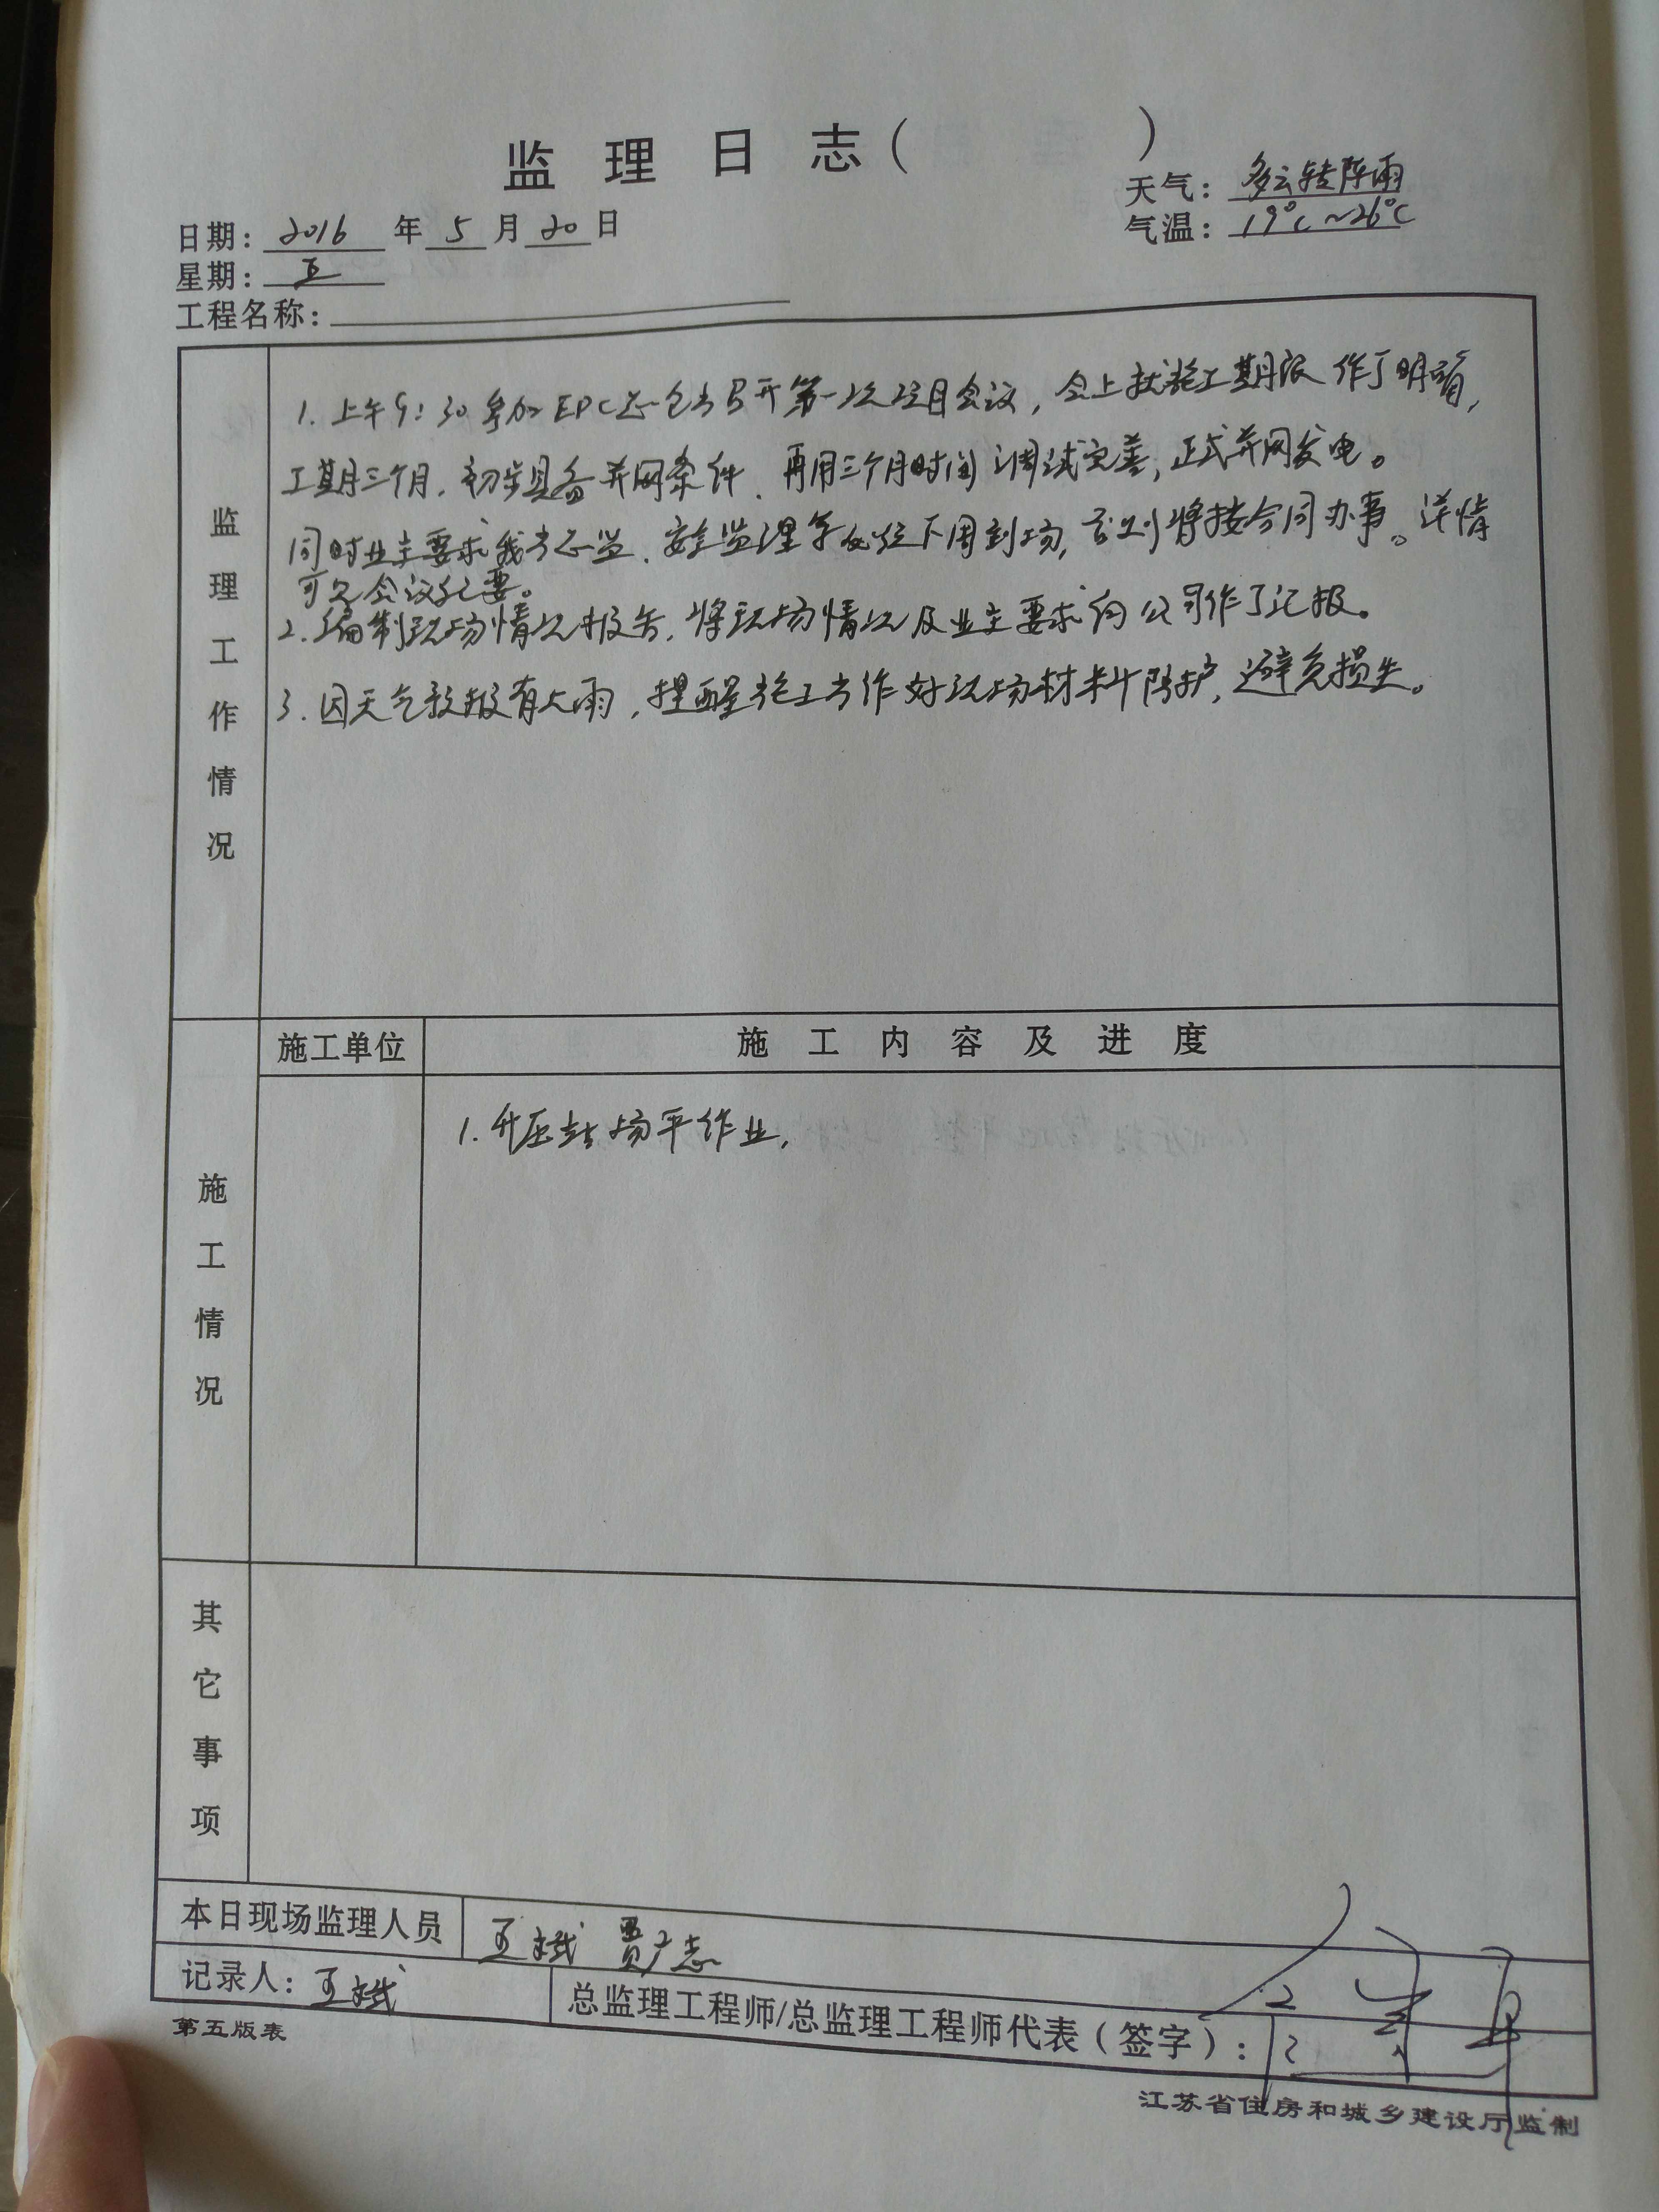 监理日志（ ）
天气：多云转阵雨
日期：2016年5月20日
气温：19℃~26℃
星期：五
工程名称：
监理工作情况
1.上午9:30参加EPC总包方召开第一次项目会议，会上就施工期限作了明确，
工期三个月，初步具备并网条件，再用三个月时间调试完善，正式并网发电。
同时业主要求我方总监、安全监理等必须下周到场，否则将按合同办事。详情
可见会议纪要。
2.编制现场情况报告，将现场情况及业主要求向公司作了汇报。
3.因天气预报有大雨，提醒施工方作好现场材料防护，避免损失。
施工单位 施工内容及进度
施工情况
1.升压站场平作业，
其它事项
本日现场监理人员 王斌 贾广志
记录人：王斌 总监理工程师/总监理工程师代表（签字）：
第五版表
江苏省住房和城乡建设厅监制